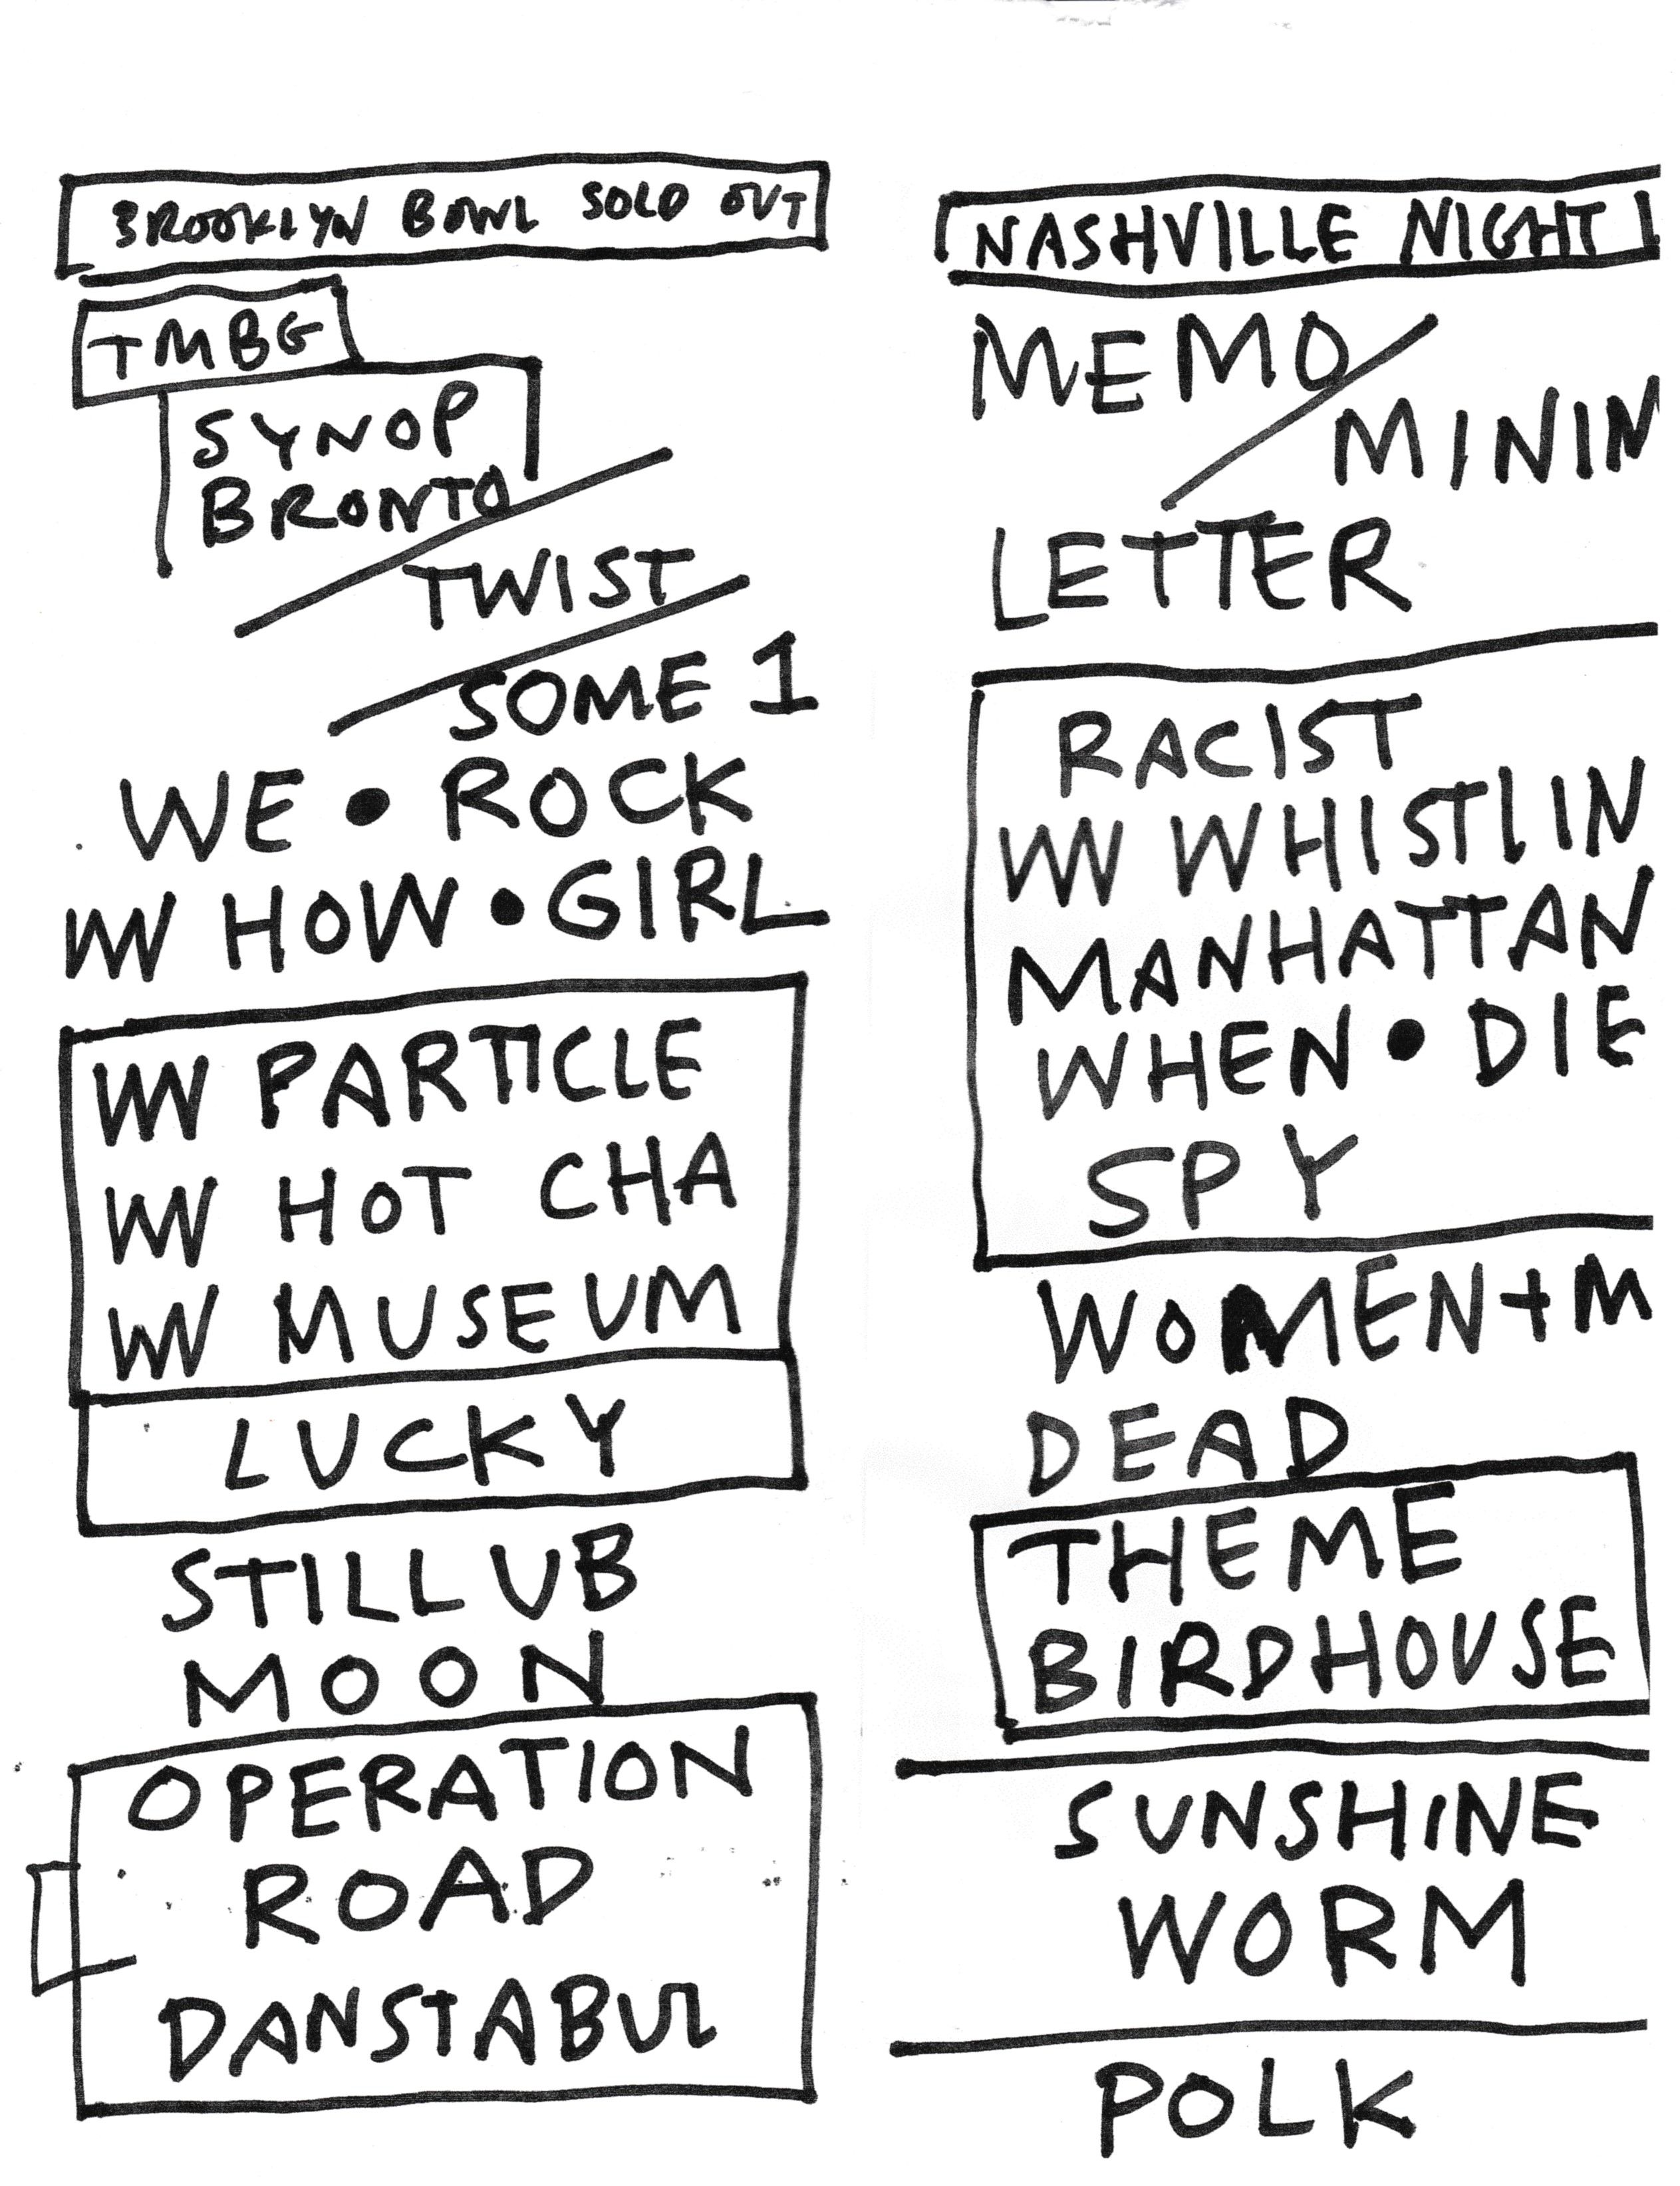 BROOKLYN BOWL SOLD OUT
TMBG
SYNOP
BRONTO
TWIST
SOME 1
WE • ROCK
W HOW • GIRL
W PARTICLE
W HOT CHA
W MUSEUM
LUCKY
STILL UB
MOON
OPERATION
ROAD
DANSTABUL
NASHVILLE NIGHT 1
MEMO
MININ
LETTER
RACIST
W WHISTLIN
MANHATTAN
WHEN • DIE
SPY
WOMEN + M
DEAD
THEME
BIRDHOUSE
SUNSHINE
WORM
POLK